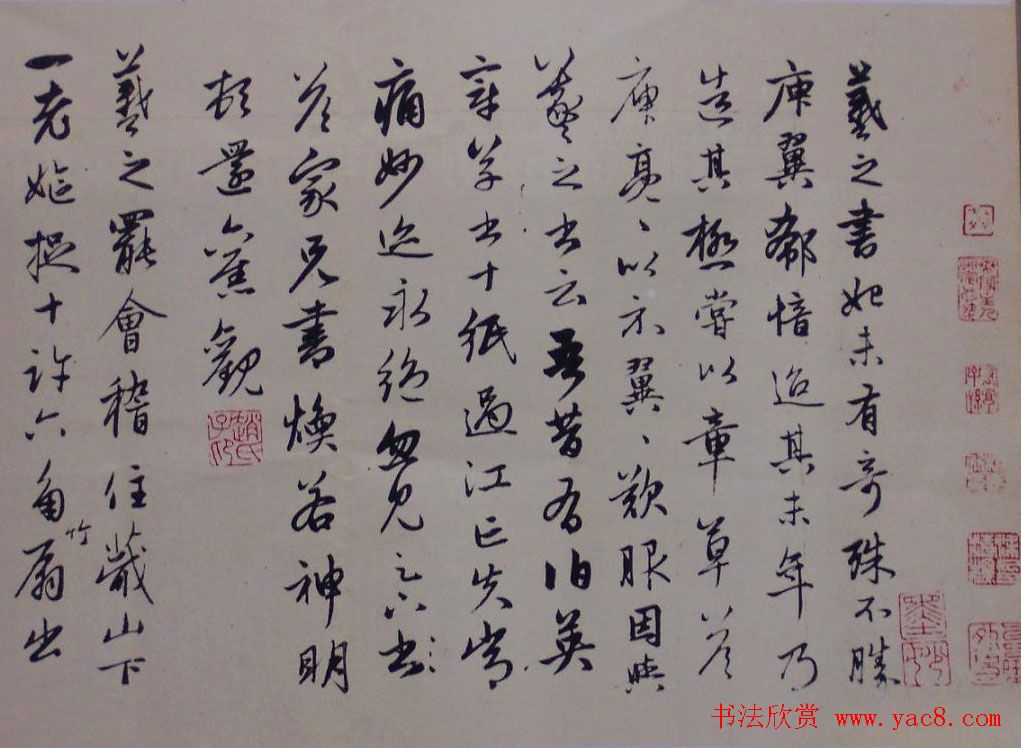 羲之書始未有奇殊不勝
庾翼郗愔迨其末年乃
造其極嘗以章草答
庾亮、以示翼、歎服因與
羲之書云吾昔有伯英
章草書十紙過江亡失常
痛妙迹永絕忽見足下書
答家兄書煥若神明
頓還舊觀
趙氏子昂
羲之罷會稽住蕺山下
一老嫗捉十許六角竹扇出
书法欣赏 www.yac8.com